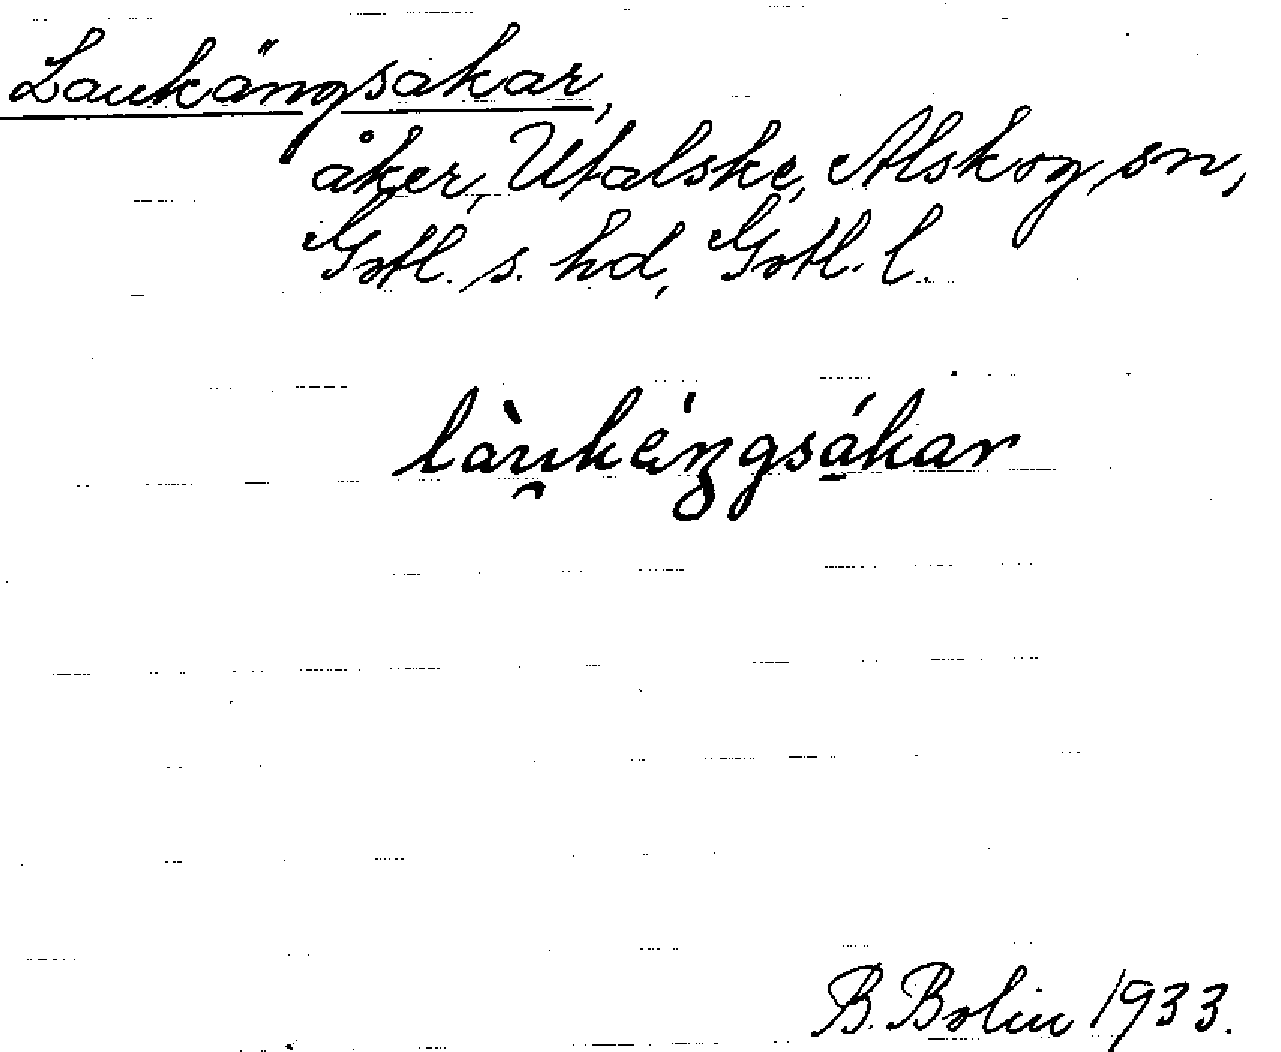 Laukängsåkar,
åker, Utalske, Alskog sn,
Gotl. s. hd, Gotl. l.
làu̯kä́ŋgsá̱kar
B. Bolin 1933.